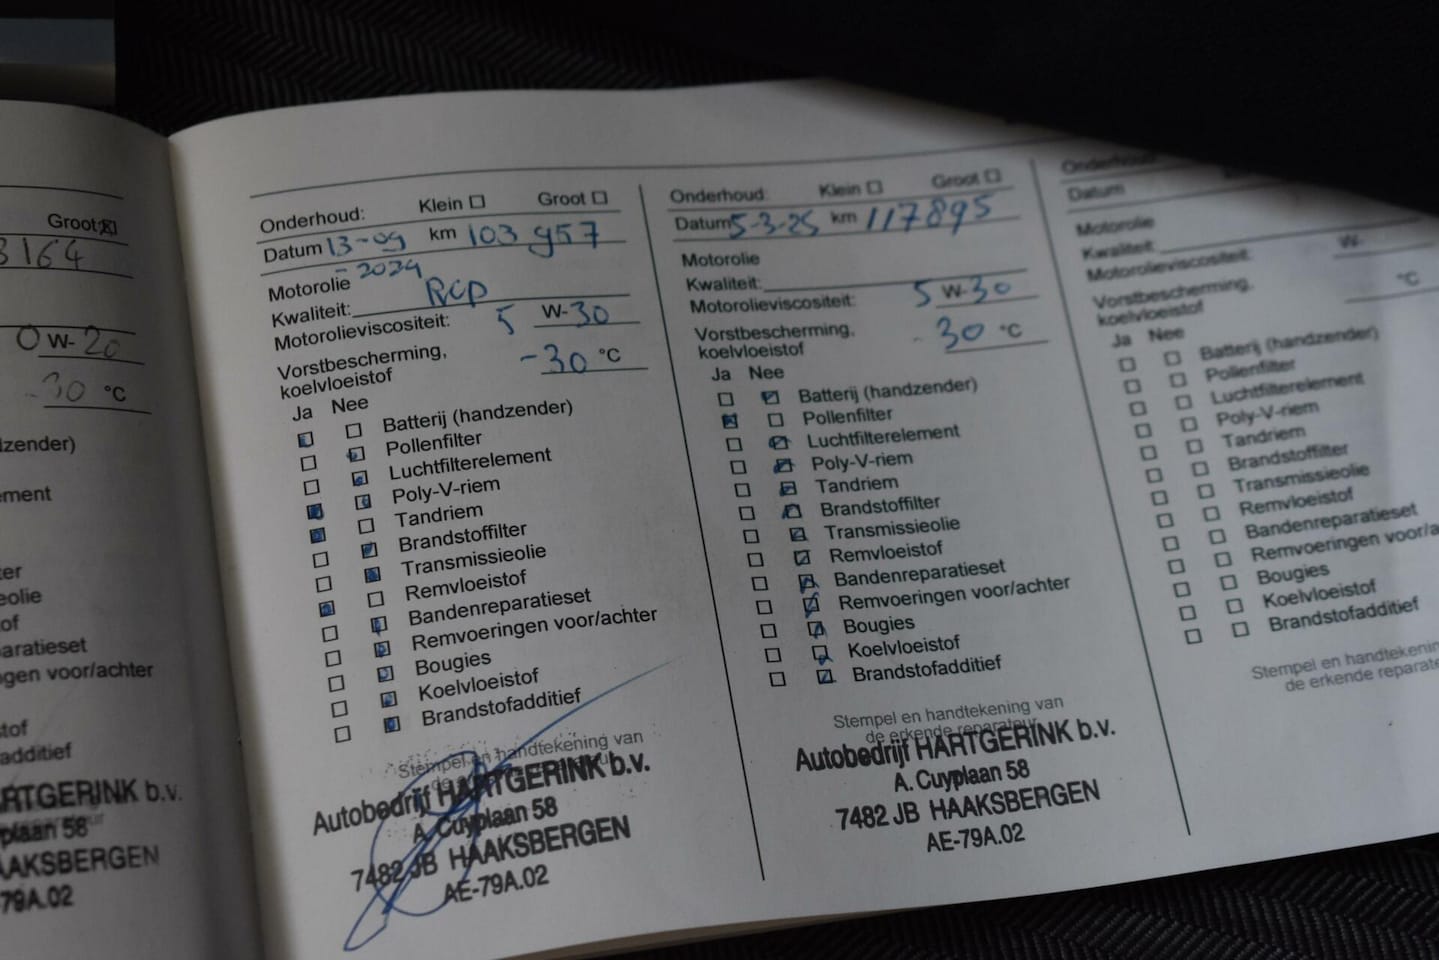 Groot
3164
W-20
-30 °C
zender)
ement
eolie
of
aratieset
gen voor/achter
stof
additief
ARTGERINK b.v.
plaan 58
AAKSBERGEN
79A.02
Onderhoud: Klein Groot
Datum 13-09 km 103 957
-2024
Motorolie
Kwaliteit:
Motorolieviscositeit: 5 W-30
Vorstbescherming, -30 °C
koelvloeistof
Ja Nee
Batterij (handzender)
Pollenfilter
Luchtfilterelement
Poly-V-riem
Tandriem
Brandstoffilter
Transmissieolie
Remvloeistof
Bandenreparatieset
Remvoeringen voor/achter
Bougies
Koelvloeistof
Brandstofadditief
Stempel en handtekening van
Autobedrijf HARTGERINK b.v.
A. Cuyplaan 58
7482 JB HAAKSBERGEN
AE-79A.02
Onderhoud: Klein Groot
Datum 5-3-25 km 117895
Motorolie
Kwaliteit:
Motorolieviscositeit: 5 W-30
Vorstbescherming, -30 °C
koelvloeistof
Ja Nee
Batterij (handzender)
Pollenfilter
Luchtfilterelement
Poly-V-riem
Tandriem
Brandstoffilter
Transmissieolie
Remvloeistof
Bandenreparatieset
Remvoeringen voor/achter
Bougies
Koelvloeistof
Brandstofadditief
Stempel en handtekening van
de erkende reparateur
Autobedrijf HARTGERINK b.v.
A. Cuyplaan 58
7482 JB HAAKSBERGEN
AE-79A.02
Onderhoud:
Datum
Motorolie
Kwaliteit:
Motorolieviscositeit: W-
Vorstbescherming, °C
koelvloeistof
Ja Nee
Batterij (handzender)
Pollenfilter
Luchtfilterelement
Poly-V-riem
Tandriem
Brandstoffilter
Transmissieolie
Remvloeistof
Bandenreparatieset
Remvoeringen voor/a
Bougies
Koelvloeistof
Brandstofadditief
Stempel en handtekening
de erkende reparate